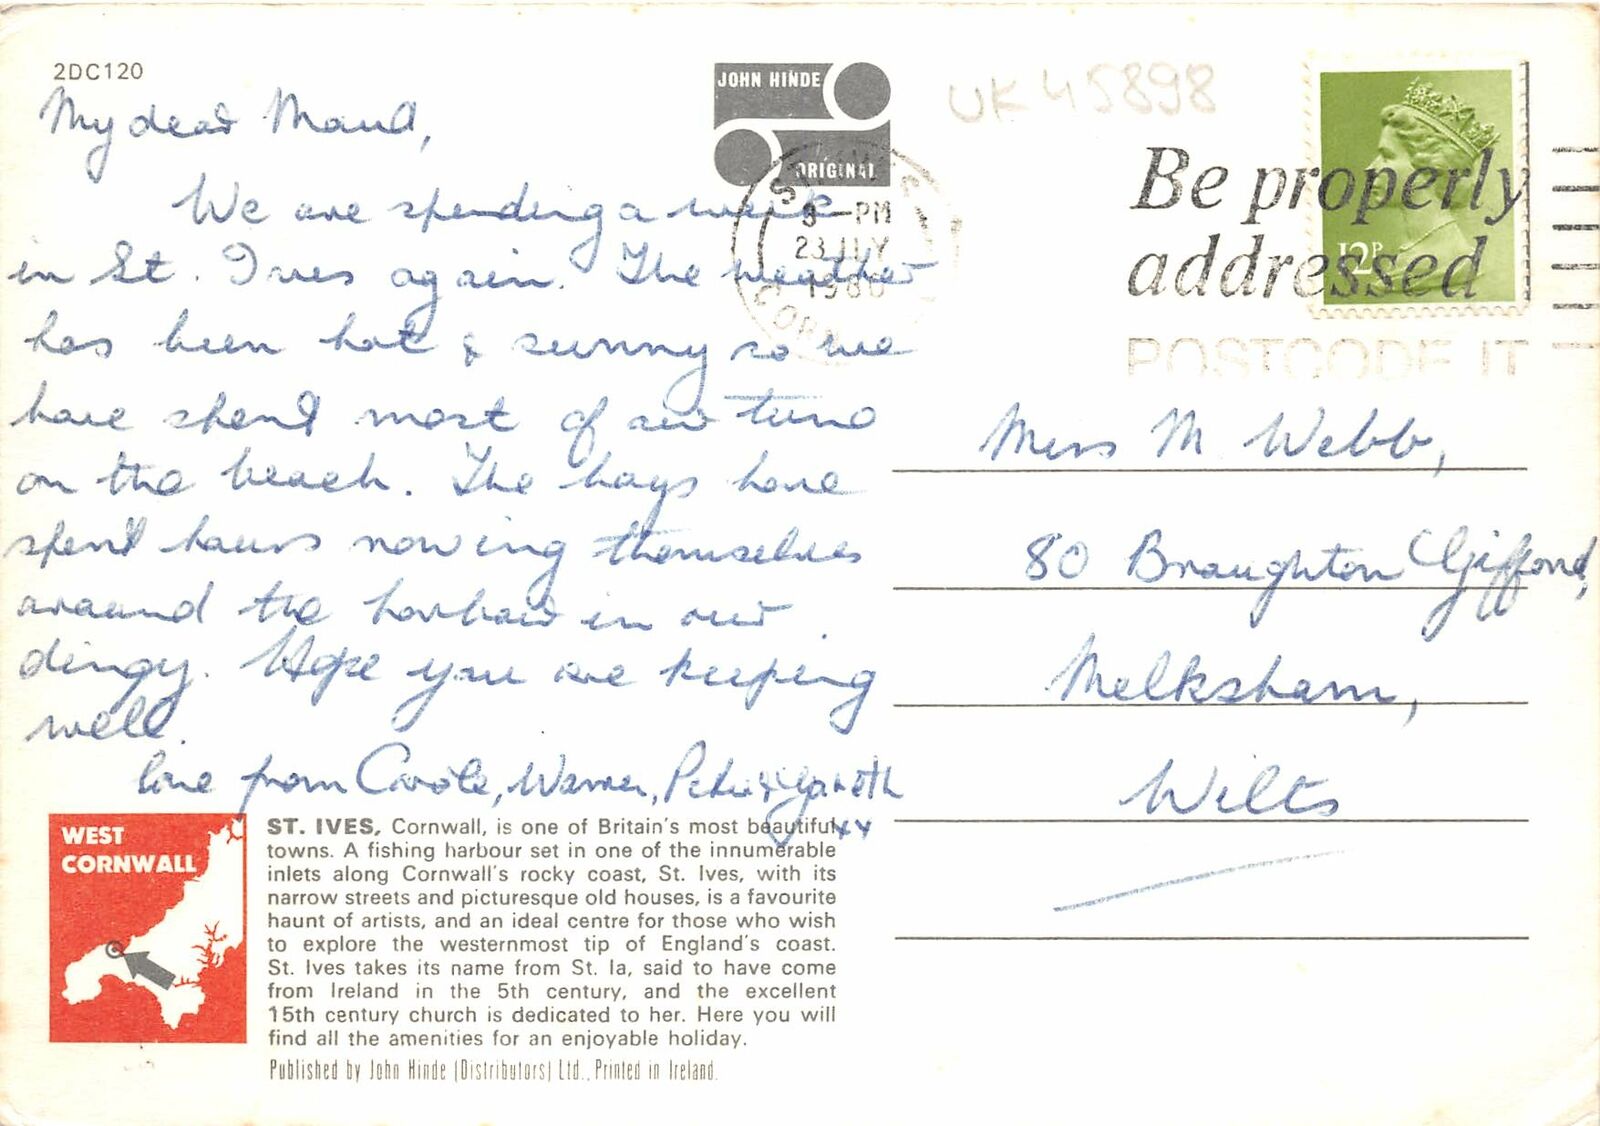 2DC120
My dear Maud,
We are spending a week
in St. Ives again. The weather
has been hot & sunny so we
have spent most of our time
on the beach. The boys have
spent hours rowing themselves
around the harbour in our
dingy. Hope you are keeping
well.
love from Carole, Warner, Peter & Gareth
xx
JOHN HINDE
ORIGINAL
UK 45898
ST. IVES
PM
23 JLY
1980
CORNWALL
Be properly
addressed
POSTCODE IT
12P
Miss M Webb,
80 Broughton Gifford,
Melksham,
Wilts
WEST
CORNWALL
ST. IVES, Cornwall, is one of Britain's most beautiful
towns. A fishing harbour set in one of the innumerable
inlets along Cornwall's rocky coast, St. Ives, with its
narrow streets and picturesque old houses, is a favourite
haunt of artists, and an ideal centre for those who wish
to explore the westernmost tip of England's coast.
St. Ives takes its name from St. Ia, said to have come
from Ireland in the 5th century, and the excellent
15th century church is dedicated to her. Here you will
find all the amenities for an enjoyable holiday.
Published by John Hinde (Distributors) Ltd., Printed in Ireland.